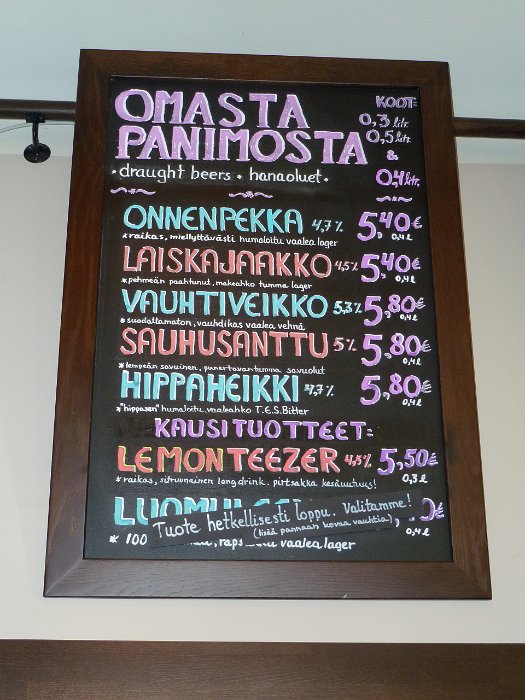 OMASTA
PANIMOSTA
• draught beers • hanaoluet •
KOOT:
0,3 litr.
0,5 litr.
&
0,4 litr.
ONNENPEKKA 4,7% 5,40€
* raikas, miellyttävästi humaloitu vaalea lager 0,4 l
LAISKAJAAKKO 4,5% 5,40€
* pehmeän paahtunut, makeahko tumma lager 0,4 l
VAUHTIVEIKKO 5,3% 5,80€
* suodattamaton, vauhdikas vaalea vehnä 0,4 l
SAUHUSANTTU 5% 5,80€
* lempeän savuinen, punertavantumma savuolut 0,4 l
HIPPAHEIKKI 4,7% 5,80€
* "hippasen" humaloitu, maleahko T.E.S. Bitter 0,4 l
KAUSITUOTTEET:
LEMONTEEZER 4,5% 5,50€
* raikas, sitruunainen longdrink. pirtsakka kesäuutuus! 0,3 l
Tuote hetkellisesti loppu. Valitamme!
(lisää pannaan kovaa vauhtia)
* 100 vaalea lager 0,4 l